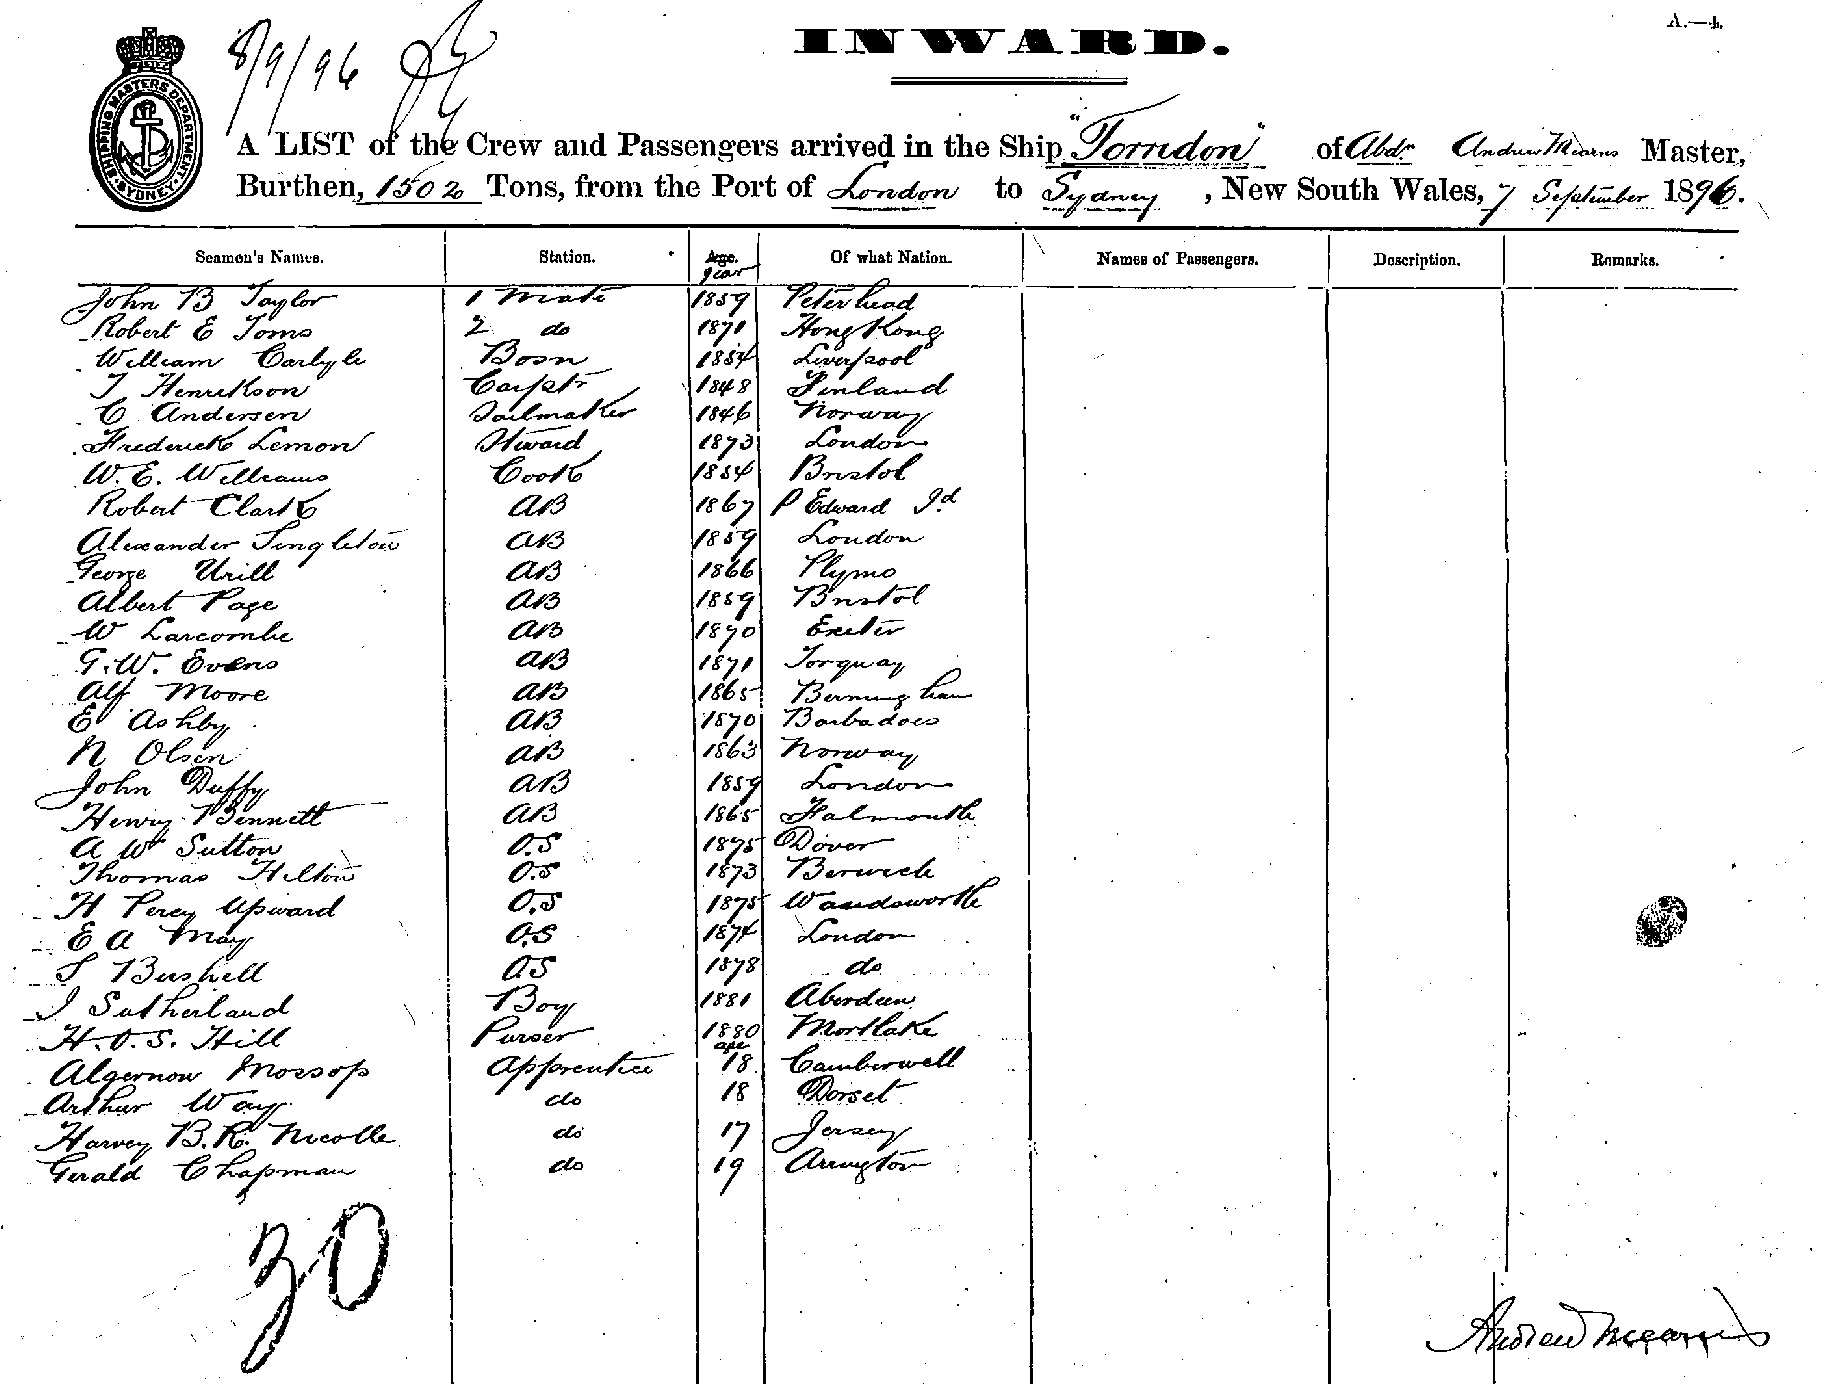 A.—4.
8/9/96
INWARD.
SHIPPING MASTERS DEPARTMENT SYDNEY
A LIST of the Crew and Passengers arrived in the Ship "Torridon" of Abdn Andrew Mearns Master,
Burthen, 1502 Tons, from the Port of London to Sydney, New South Wales, 7 September 1896.
Seamen's Names. Station. Age. Of what Nation. Names of Passengers. Description. Remarks.
year
John B Taylor 1 Mate 1859 Peterhead
Robert E Toms 2 do 1871 Hong Kong
William Carlyle Bosn 1854 Liverpool
J Henrikson Carptr 1848 Finland
C Andersen Sailmaker 1846 Norway
Frederick Lemon Steward 1873 London
W. E. Williams Cook 1854 Bristol
Robert Clark AB 1867 P Edward Id
Alexander Singleton AB 1859 London
George Urill AB 1866 Plymo
Albert Page AB 1859 Bristol
W Larcombe AB 1870 Exeter
G. W. Evens AB 1871 Torquay
Alf Moore AB 1865 Bermingham
E Ashby AB 1870 Barbadoes
N Olsen AB 1863 Norway
John Duffy AB 1859 London
Henry Bennett AB 1865 Falmouth
A W Sutton O.S 1875 Dover
Thomas Hilton O.S 1873 Berwick
H Percy Upward O.S 1875 Wandsworth
E A May O.S 1874 London
S Bushell OS 1878 do
J Sutherland Boy 1881 Aberdeen
H. O. S. Hill Purser 1880 Mortlake
age
Algernon Mossop Apprentice 18 Camberwell
Arthur Way do 18 Dorset
Harvey B. R. Nicolle do 17 Jersey
Gerald Chapman do 19 Arrington
30
Andrew Mearns